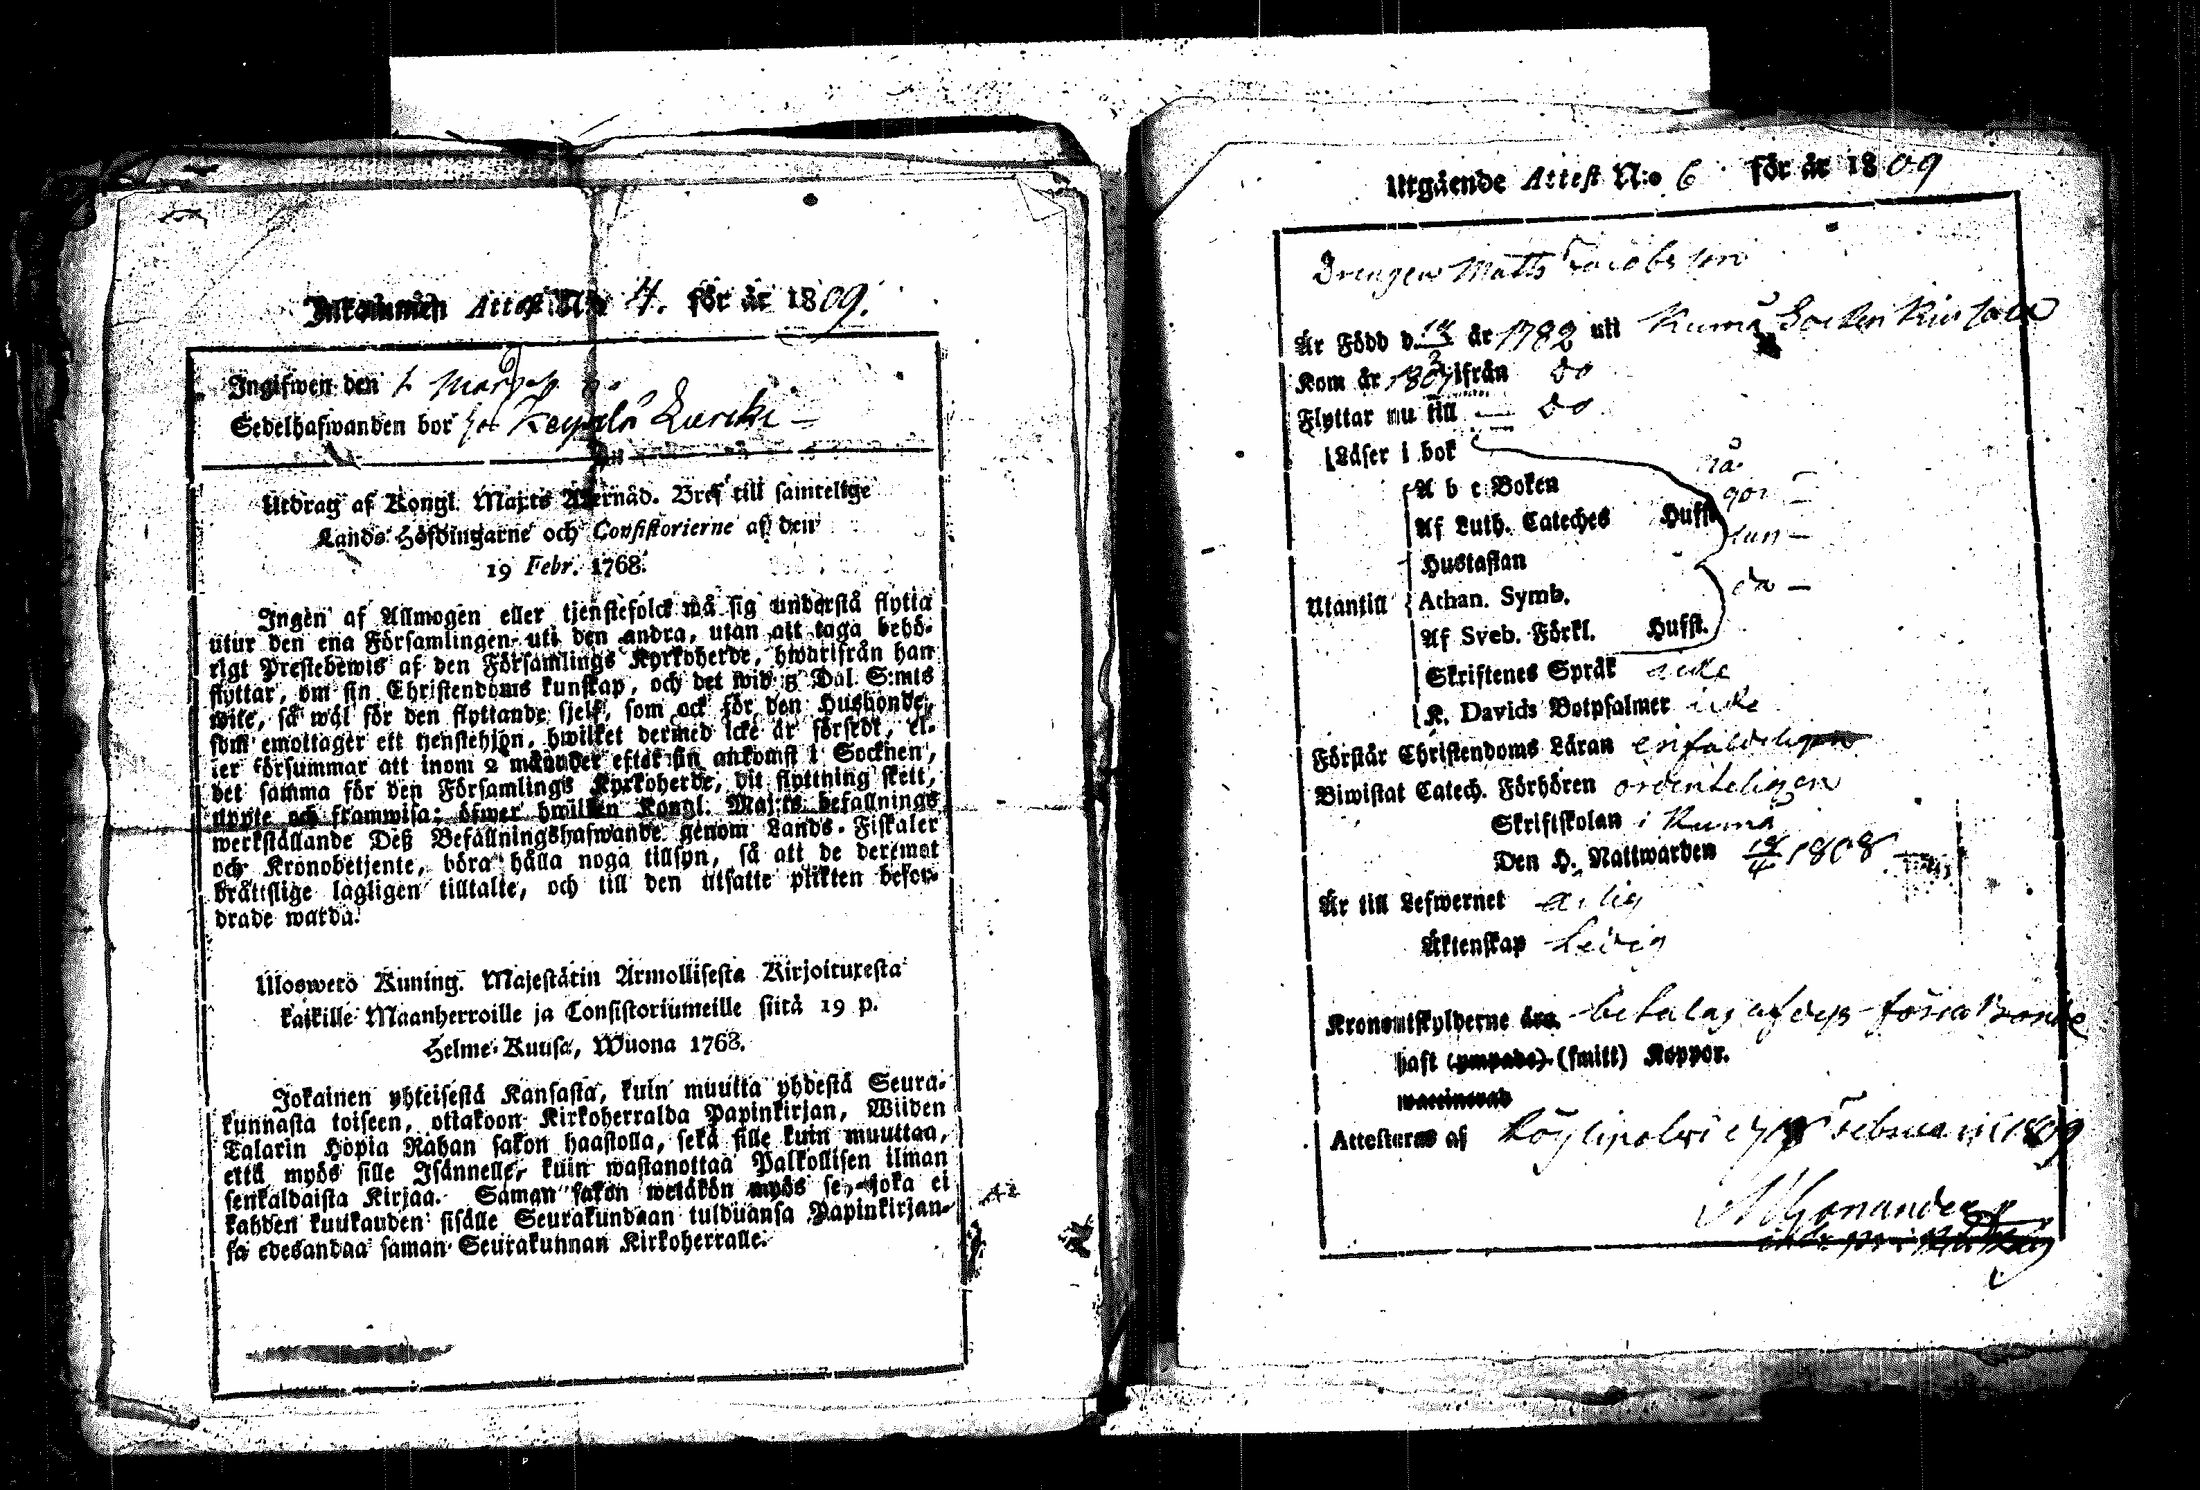 Inkommen Attest N:o 4. för år 1809.
Ingifwen den 1 Mars
Sedelhafwanden bor hos
Utdrag af Kongl. Maj:ts Allernåd. Bref till samtelige
Lands-Höfdingarne och Consistorierne af den
19 Febr. 1768.
Ingen af Allmogen eller tjenstefolck må sig understå flytta
utur den ena Församlingen uti den andra, utan att taga behö-
rigt Prestebewis af den Församlings Kyrkoherde, hwarifrån han
flyttar, om sin Christendoms kunskap, och det wid 5 Dal. S:mts
wite, så wäl för den flyttande sjelf, som ock för den Husbonde,
som emottager ett tjenstehjon, hwilket dermed icke är försedt, el-
ler försummar att inom 2 månader efter sin ankomst i Socknen,
det samma för den Församlings Kyrkoherde, dit flyttning skett,
uppte och framwisa; öfwer hwilken Kongl. Maj:ts befallnings
werkställande Deß Befallningshafwande genom Lands-Fiskaler
och Kronobetjente, böra hålla noga tillsyn, så att de deremot
bråttslige lagligen tilltalte, och till den utsatte plikten befor-
drade warda.
Uloswetö Kuning. Majestätin Armollisesta Kirjoituxesta
kaikille Maanherroille ja Consistoriumeille siitä 19 p.
Helme-Kuusa, Wuona 1768.
Jokainen yhteisestä Kansasta, kuin muutta yhdestä Seura-
kunnasta toiseen, ottakoon Kirkoherralda Papinkirjan, Wiiden
Talarin Hopia Rahan sakon haastolla, sekä sille kuin muuttaa,
että myös sille Isännelle, kuin wastanottaa Palkollisen ilman
senkaldaista Kirjaa. Saman sakon wetäkön myös se, joka ei
kahden kuukauden sisälle Seurakundaan tulduansa Papinkirjan-
sa edesandaa saman Seurakunnan Kirkoherralle.
Utgående Attest N:o 6 för år 1809
Drengen Matts Jacobsson
Är Född d. år 1782 uti Kumå Socken
Kom år ifrån do
Flyttar nu till — do
Läser i bok
A b c Boken
Af Luth. Cateches Hufst.
Hustaflan
Utantill Athan. Symb.
Af Sveb. Förkl. Hufst.
Skriftenes Språk icke
K. Davids Botpsalmer icke
Förstår Christendoms Läran enfaldeligen
Biwistat Catech. Förhören ordenteligen
Skriftskolan i Kumå
Den H. Nattwarden 1808
Är till Lefwernet ärlig
Äktenskap Ledig
Kronoutskylderne äro betalas af deß förra Bonde
haft (ympade) (smitt) Koppor.
waccinerad
Attesteras af Februarii 1809